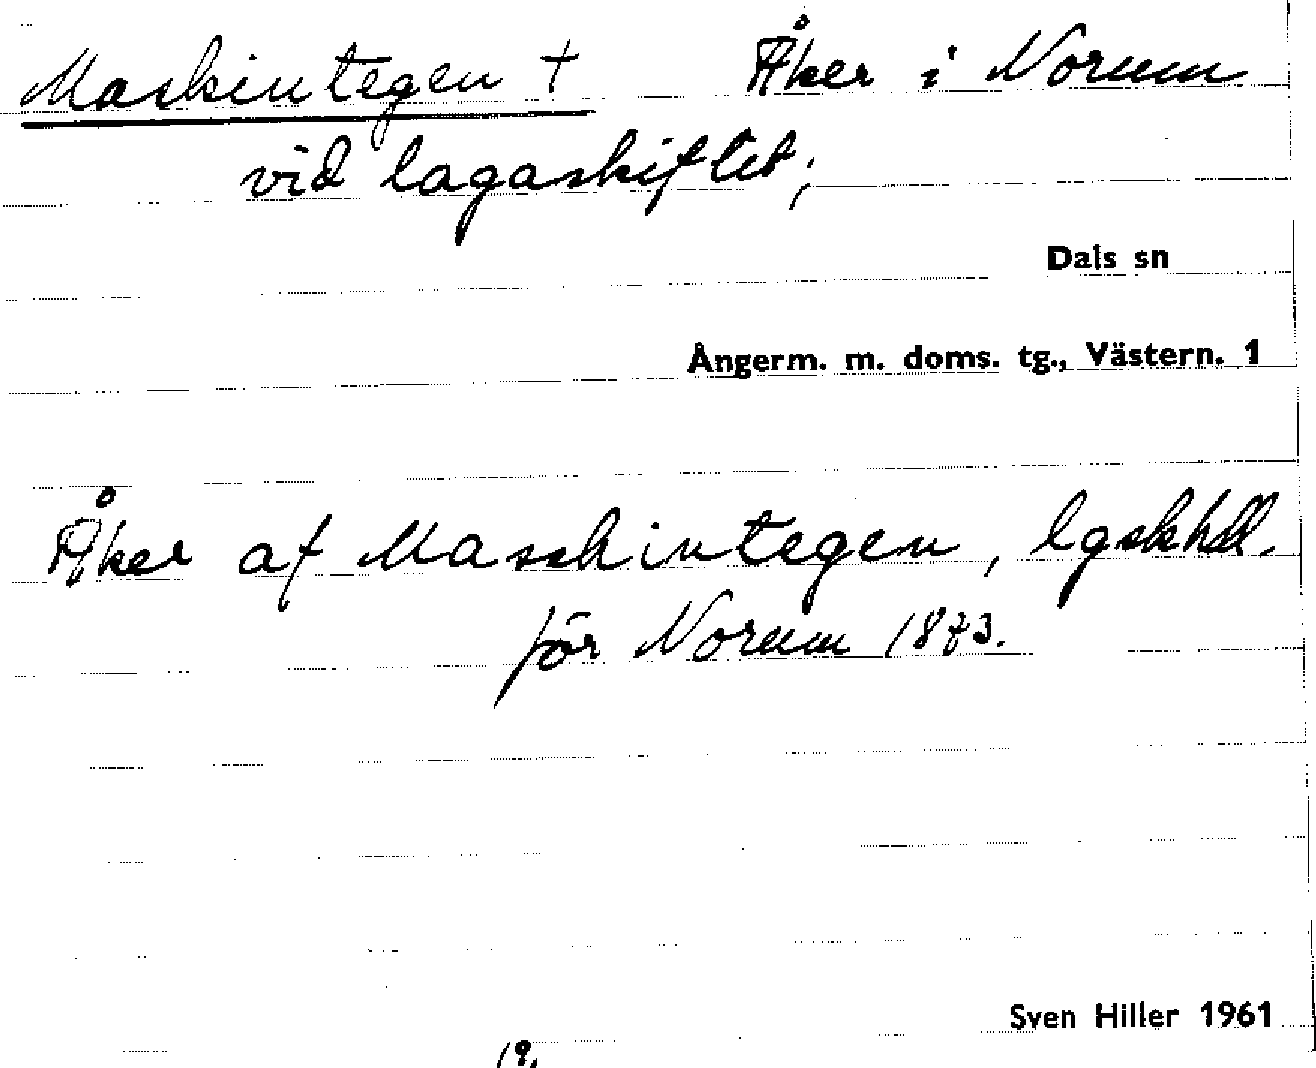 Maskintegen † Åker i Norum
vid lagaskiftet;
Dals sn
Ångerm. m. doms. tg., Västern. 1
Åker af Maskintegen, lgskhdl.
för Norum 1873.
Sven Hiller 1961
19.